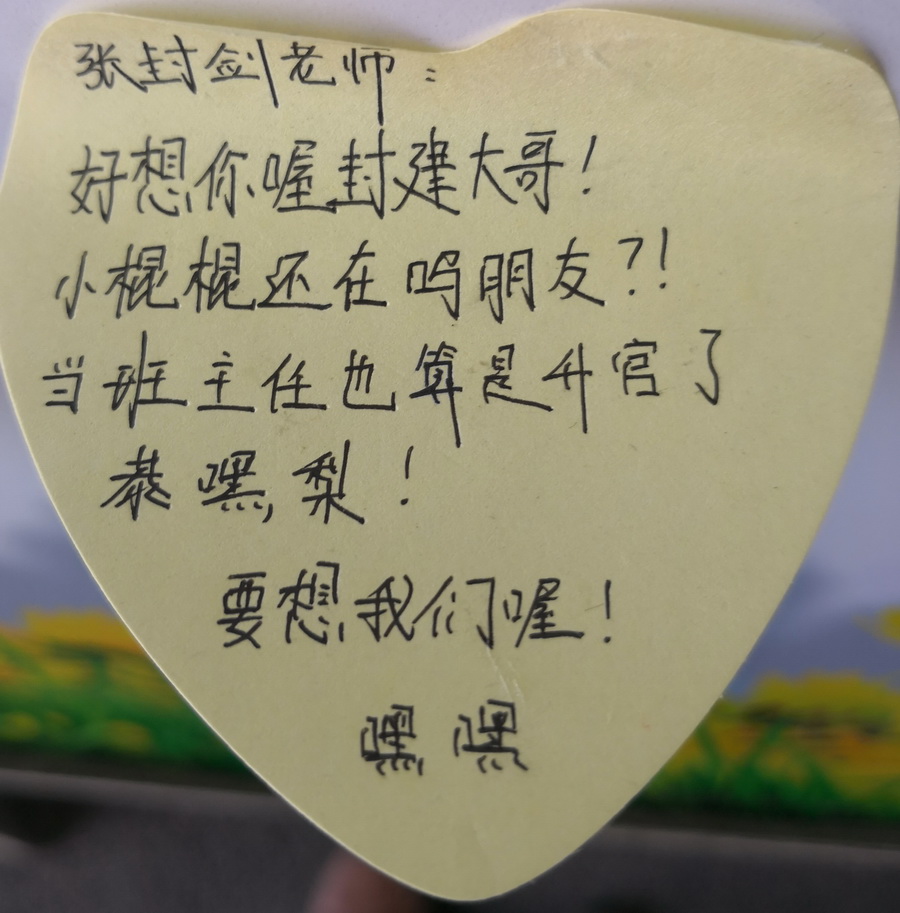 张封剑老师：
好想你喔封建大哥！
小棍棍还在吗朋友？！
当班主任也算是升官了
恭嘿梨！
要想我们喔！
嘿嘿